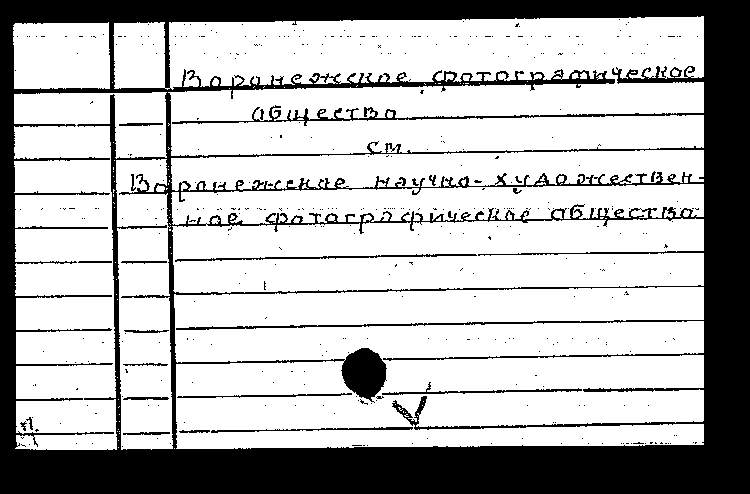 Воронежское фотографическое
общество
см.
Воронежское научно-художествен-
ное фотографическое общество.